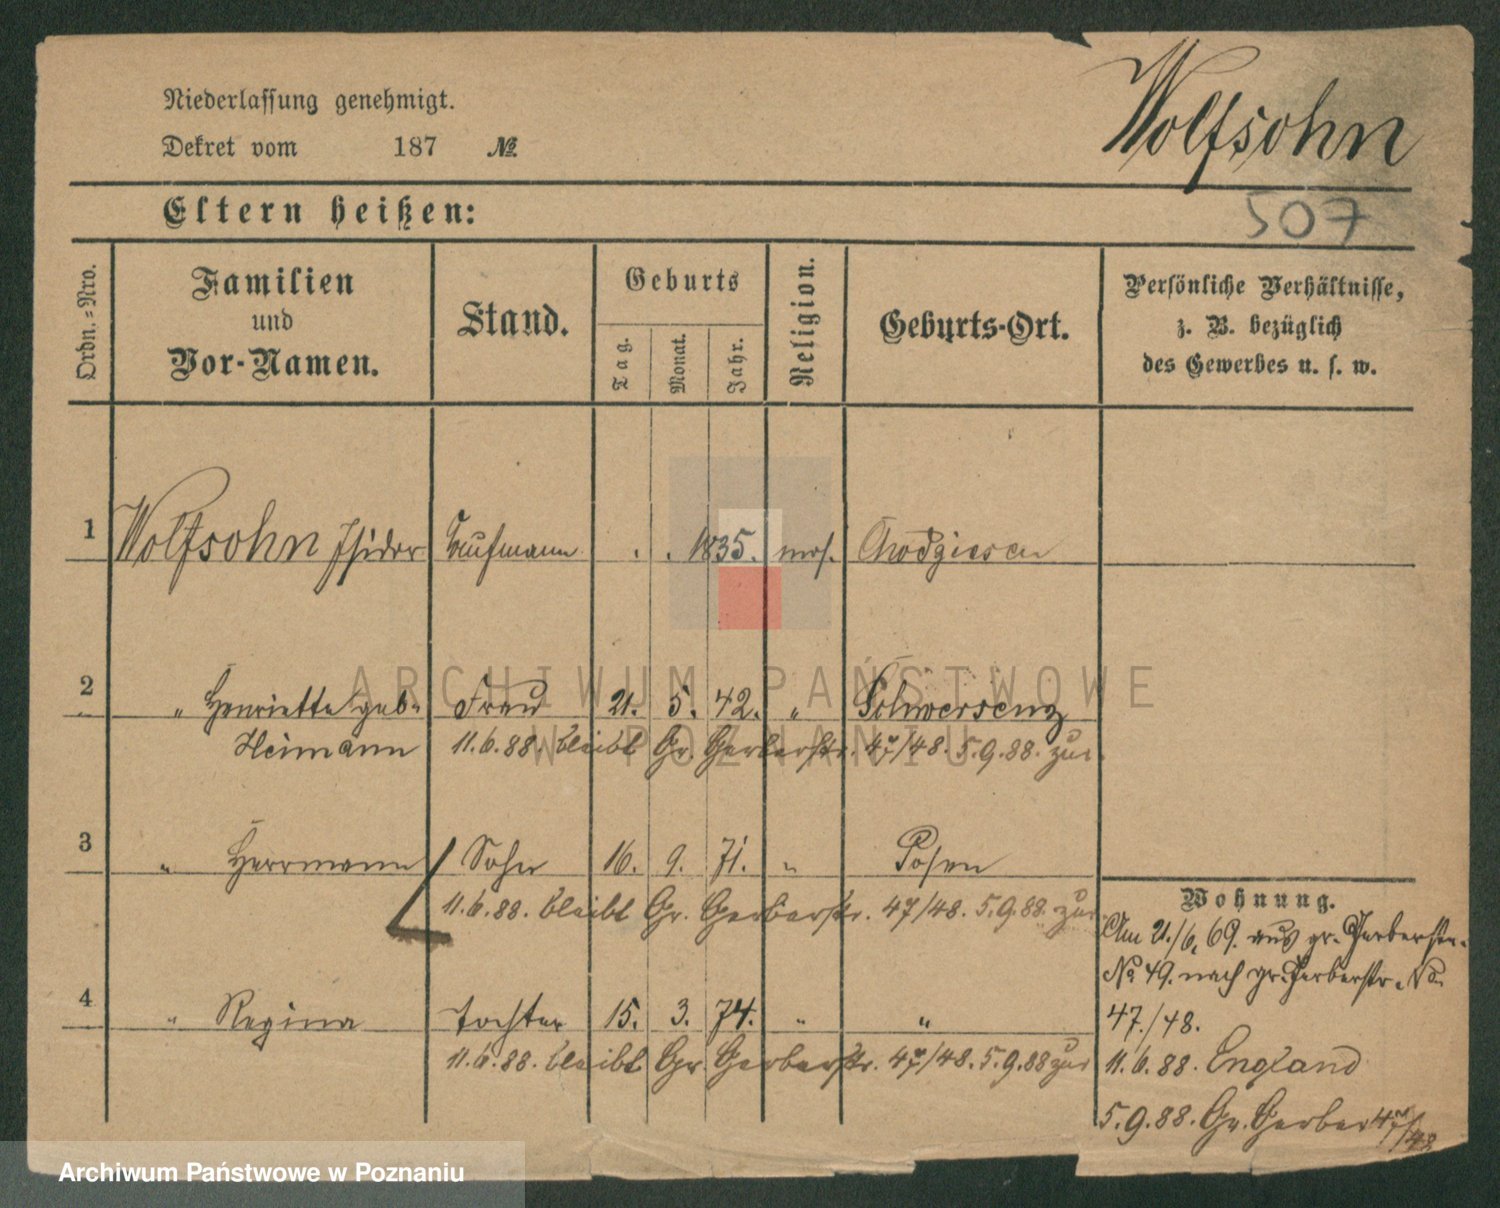 Wolfsohn
Niederlassung genehmigt.
Dekret vom 187 №
507
Eltern heißen:
Ordn.-Nro.
Familien und Vor-Namen.
Stand.
Geburts
Tag. Monat. Jahr.
Religion.
Geburts-Ort.
Persönliche Verhältnisse,
z. B. bezüglich
des Gewerbes u. s. w.
1 Wolfsohn Isidor Kaufmann . . 1835. mos. Chodziesen
2 " Henriette geb. Frau 21. 5. 42. " Schwersenz
Heimann 11.6.88. bleibt Gr. Gerberstr. 47/48. 5.9.88. zur.
3 " Herrmann Sohn 16. 9. 71. " Posen
11.6.88. bleibt Gr. Gerberstr. 47/48. 5.9.88. zur
4 " Regina Tochter 15. 3. 74. " "
11.6.88. bleibt Gr. Gerberstr. 47/48. 5.9.88 zur
Wohnung.
Am 21./6. 69. aus gr. Gerberstr.
No 49. nach gr. Gerberstr. No
47./48.
11.6.88. England
5.9.88. Gr. Gerber 47/48
ARCHIWUM PAŃSTWOWE
W POZNANIU
Archiwum Państwowe w Poznaniu